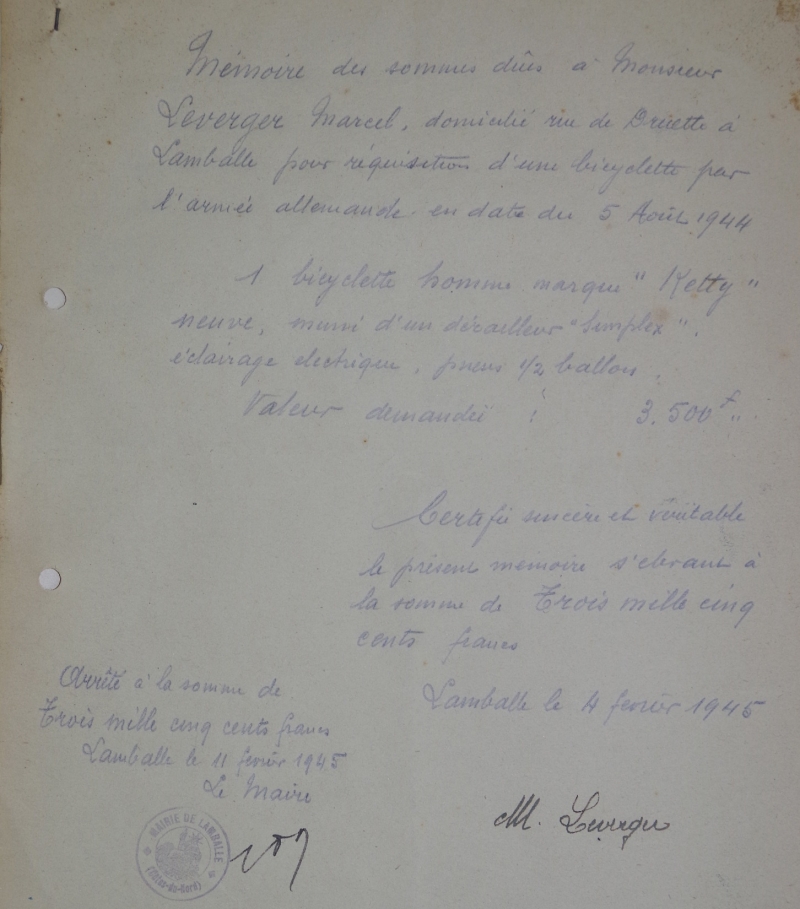 Mémoire des sommes dûes à Monsieur
Leverger Marcel, domicilié rue de Dréette à
Lamballe pour réquisition d'une bicyclette par
l'armée allemande en date du 5 Août 1944
1 bicyclette homme marque "Ketty"
neuve, muni d'un dérailleur "Simplex",
éclairage electrique, pneus 1/2 ballon,
Valeur demandeë : 3.500f "
Certifié sincère et véritable
le présent mémoire s'élevant à
la somme de Trois mille cinq
cents francs
Lamballe le 4 février 1945
M. Leverger
Arrêté à la somme de
Trois mille cinq cents francs
Lamballe le 11 février 1945
Le Maire
MAIRIE DE LAMBALLE
(Côtes-du-Nord)